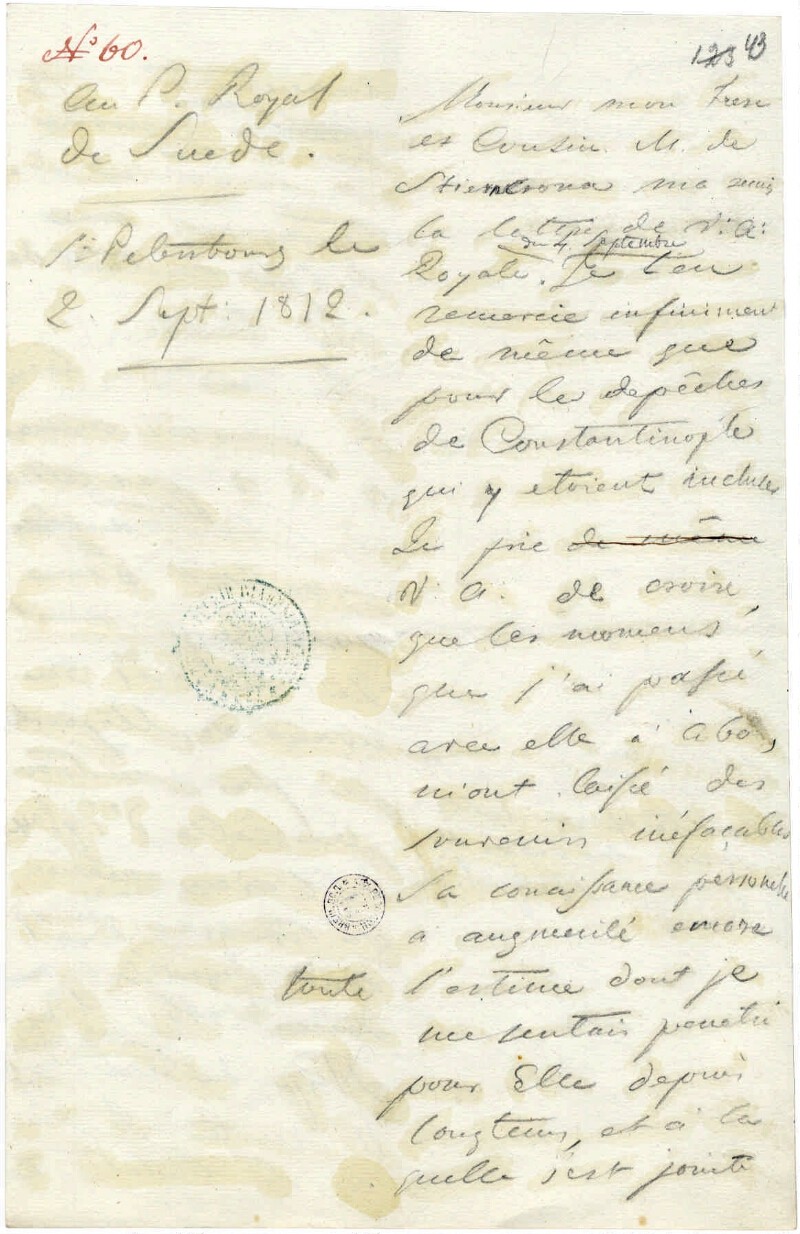 No 60.
123 43
Au P. Royal
de Suede.
St Petersbourg le
2. Sept: 1812.
Monsieur mon Frere
et Cousin. M. de
Stiernerona ma remis
la lettre de V: A:
du 4. Septembre
Royale. Je l'en
remercie infiniment
de même que
pour les depêches
de Constantinople
qui y etoient incluses
Je prie de même
V. A. de croire,
que les momens,
que j'ai passé
avec elle à Abo,
m'ont laissé des
souvenirs inéfaçables
Sa conaissance personelle
a augmenté encore
toute l'estime dont je
me sentais penetré
pour Elle depuis
longtems, et à la
quelle s'est jointe